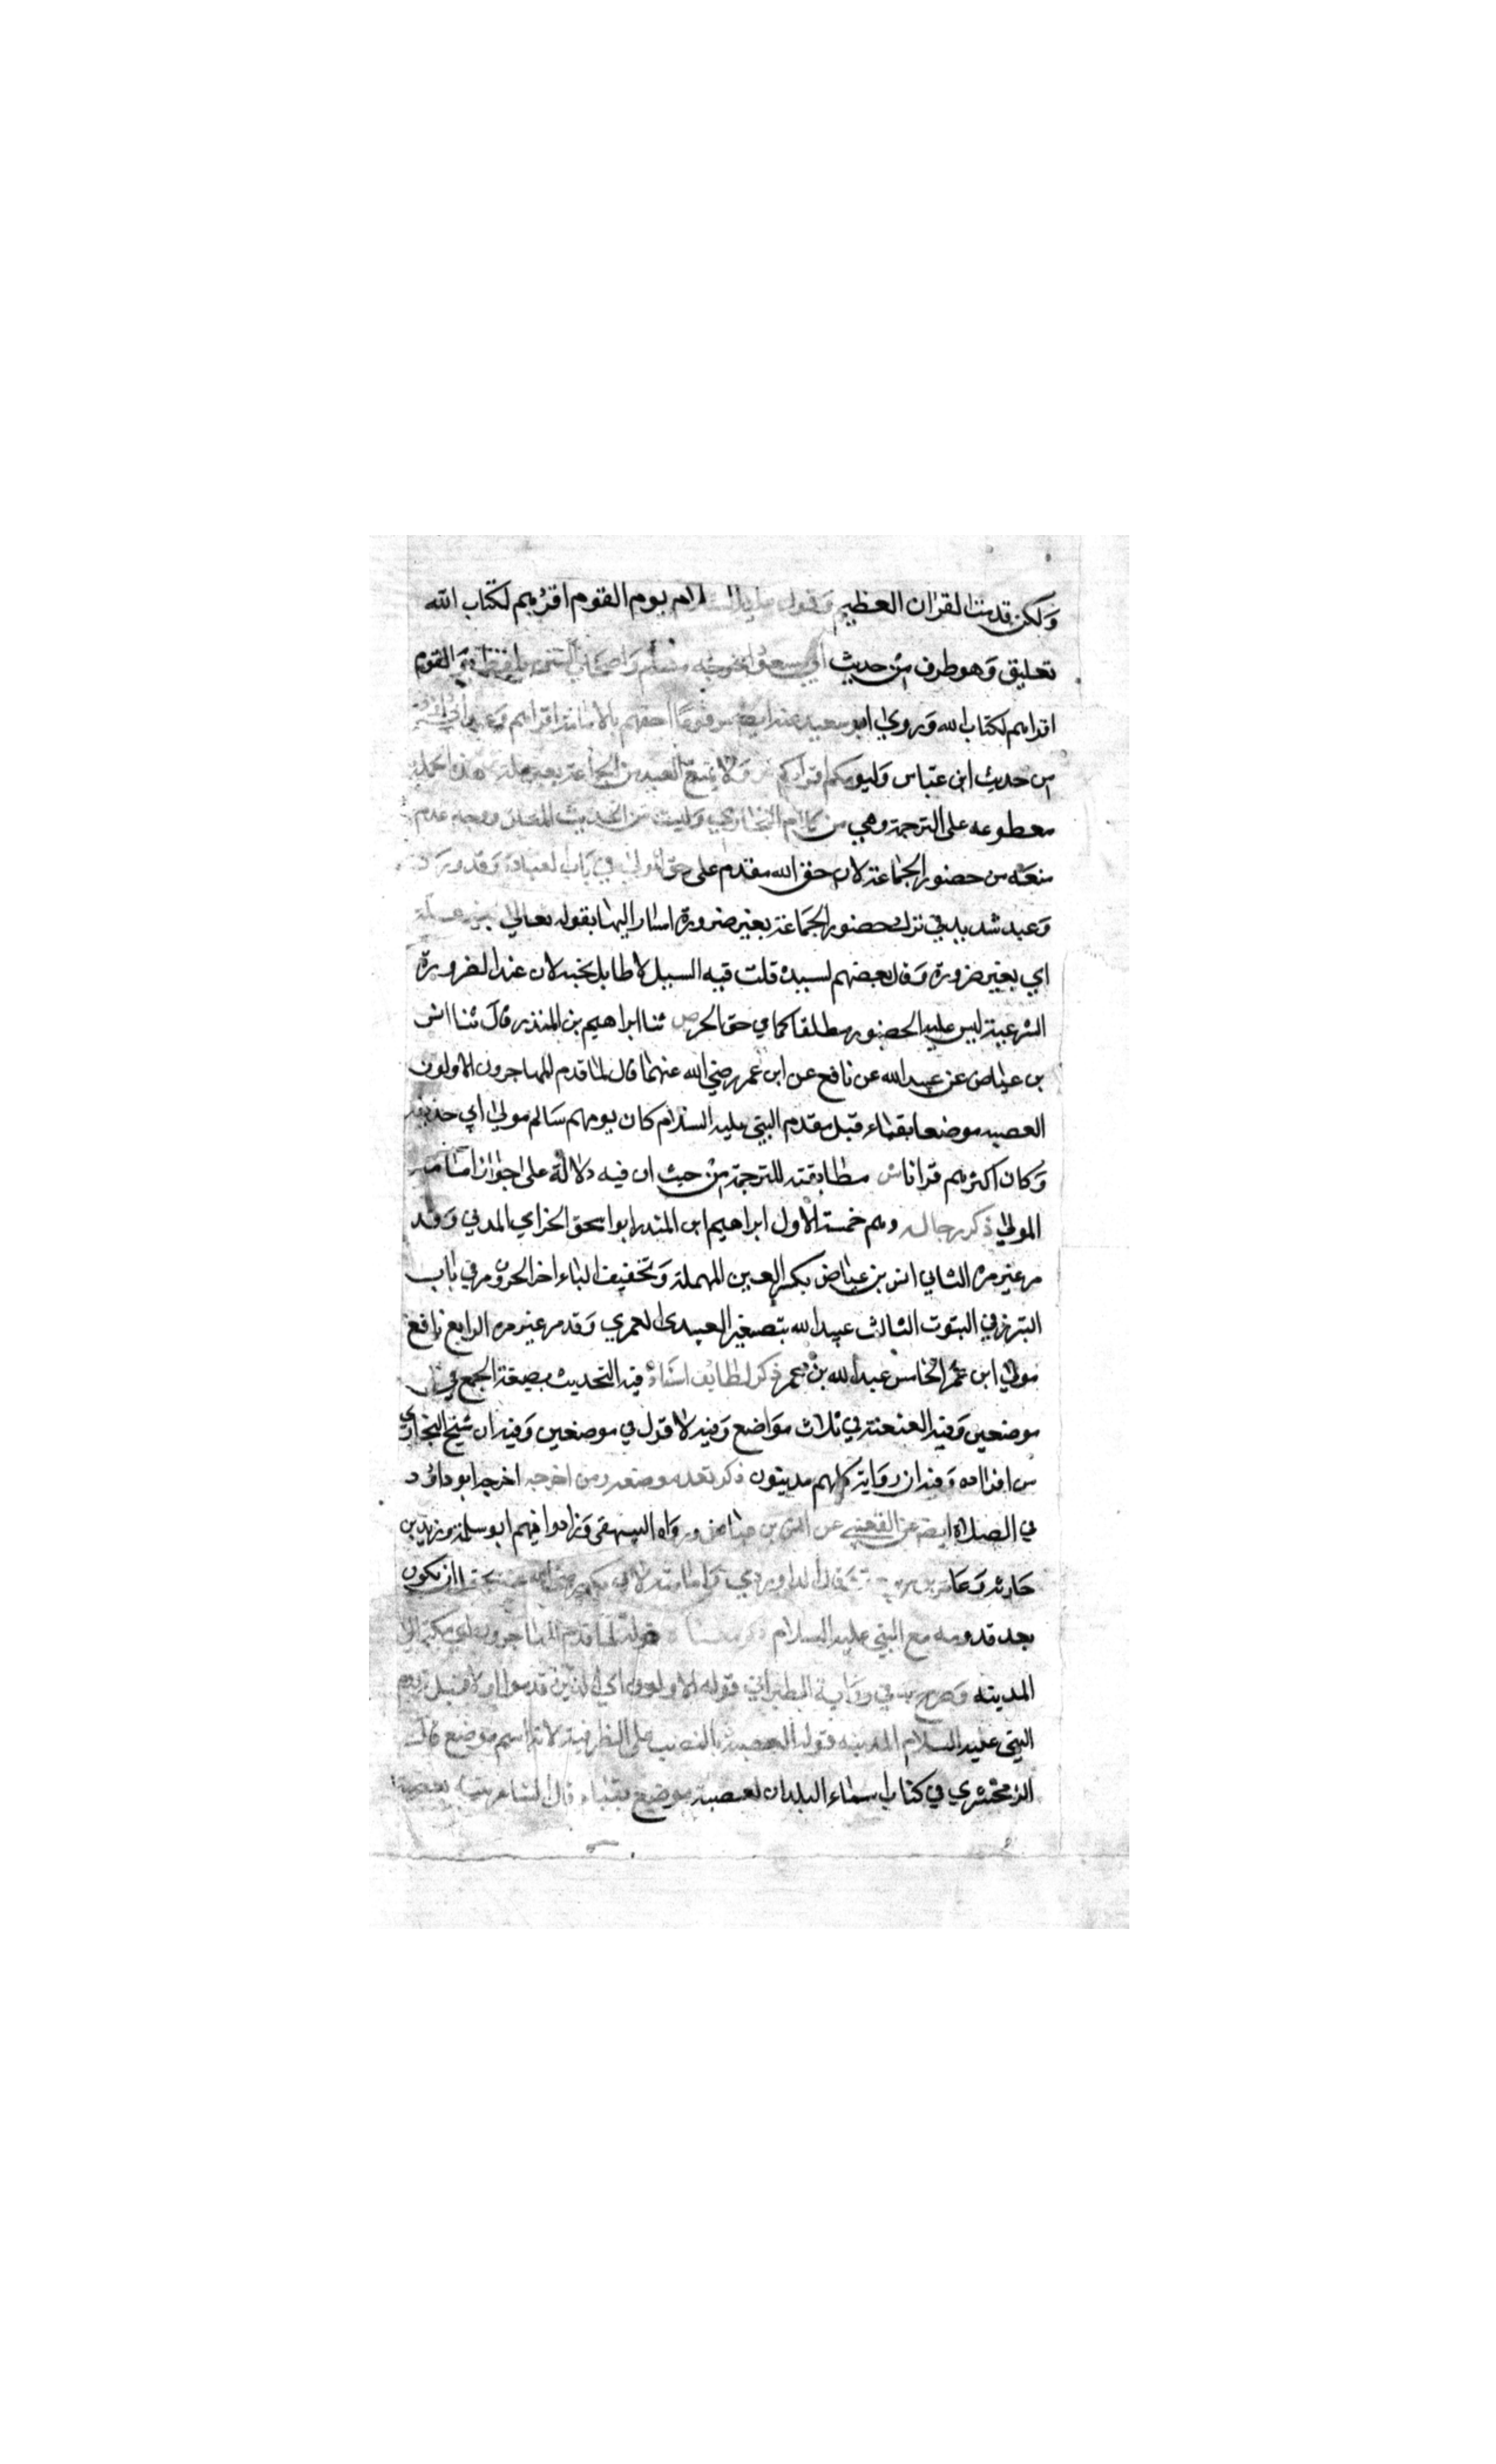 ولكن قدمنا القران العظيم وقول عليه السلام يوم القوم اقرؤهم لكتاب الله
تعليق وهو طرف من حديث ابي مسعود اخرجه مسلم واصحاب السنن بلفظ يؤم القوم
اقراهم لكتاب الله وروي ابو سعيد عنده ايضا مرفوعا احقهم بالامامة اقراهم وعند ابي داود
من حديث ابن عباس وليومكم اقراوكم ولا يمنع العبد من الجماعة بغير علة هذه الجملة
معطوفه على الترجمة وهي من كلام البخاري وليست من الحديث المعلق ووجه عدم
منعه من حضور الجماعة لان حق الله مقدم على حق المولى في باب العبادة وقد ورد
وعيد شديد في ترك حضور الجماعة بغير ضرورة اشار اليها بقوله تعالي بغير علة
اي بغير ضرورة وقال بعضهم لسيده قلت قيد السيد لا طايل تحته لان عند الضرورة
الشرعية ليس عليه الحضور مطلقا كما في حق الحر ص ثنا ابراهيم بن المنذر قال ثنا انس
بن عياض عن عبيد الله عن نافع عن ابن عمر رضي الله عنهما قال لما قدم المهاجرون الاولون
العصبه موضعا بقباء قبل مقدم النبي عليه السلام كان يومهم سالم مولى ابي حذيفة
وكان اكثرهم قرانا ش مطابقته للترجمة من حيث ان فيه دلالة على جواز امامة
المولى ذكر رجاله وهم خمسة الاول ابراهيم ابن المنذر ابو اسحق الحزامي المدني وقد
مر غير مره الثاني انس بن عياض بكسر العين المهملة وتخفيف الياء اخر الحروف مر في باب
التبرز في البيوت الثالث عبيد الله بتصغير العبد العمري وقد مر غير مره الرابع نافع
مولى ابن عمر الخامس عبد الله بن عمر ذكر لطايف اسناده فيه التحديث بصيغة الجمع في
موضعين وفيه العنعنة في ثلاث مواضع وفيه القول في موضعين وفيه ان شيخ البخاري
من افراده وفيه ان رواته كلهم مدنيون ذكر تعدد موضعه ومن اخرجه اخرجه ابو داود
في الصلاة ايضا عن القعنبي عن انس بن عياض ورواه البيهقي وزادوا فيهم ابو سلمة وزيد بن
حارثه وعامر بن ربيعة فقال الداوودي وامامته لابي بكر رضي الله عنه يحتمل ان يكون
بعد قدومه مع النبي عليه السلام ذكر معناه قوله لما قدم المهاجرون اي من مكة الى
المدينه وصرح به في رواية الطبراني قوله الاولون اي الذين قدموا اولا قبل قدوم
النبي عليه السلام المدينه قوله العصبة بالنصب على الظرفية لانه اسم موضع قال
الزمخشري في كتاب اسماء البلدان العصبة موضع بقباء قال الشاعر